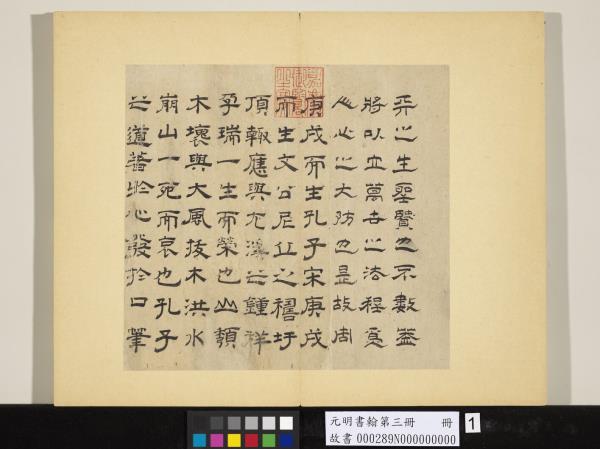 天之生聖賢也不數蓋
將以立萬古之法程為
人心之大防也是故周
庚戌而生孔子宋庚戌
而生文公尼丘之禱圩
頂輒應與尤溪之鍾祥
孕瑞一生而榮也山頹
木壞與大風拔木洪水
崩山一死而哀也孔子
之道著於心發於口筆
元明書翰第三冊 冊
故書 000289N000000000
1